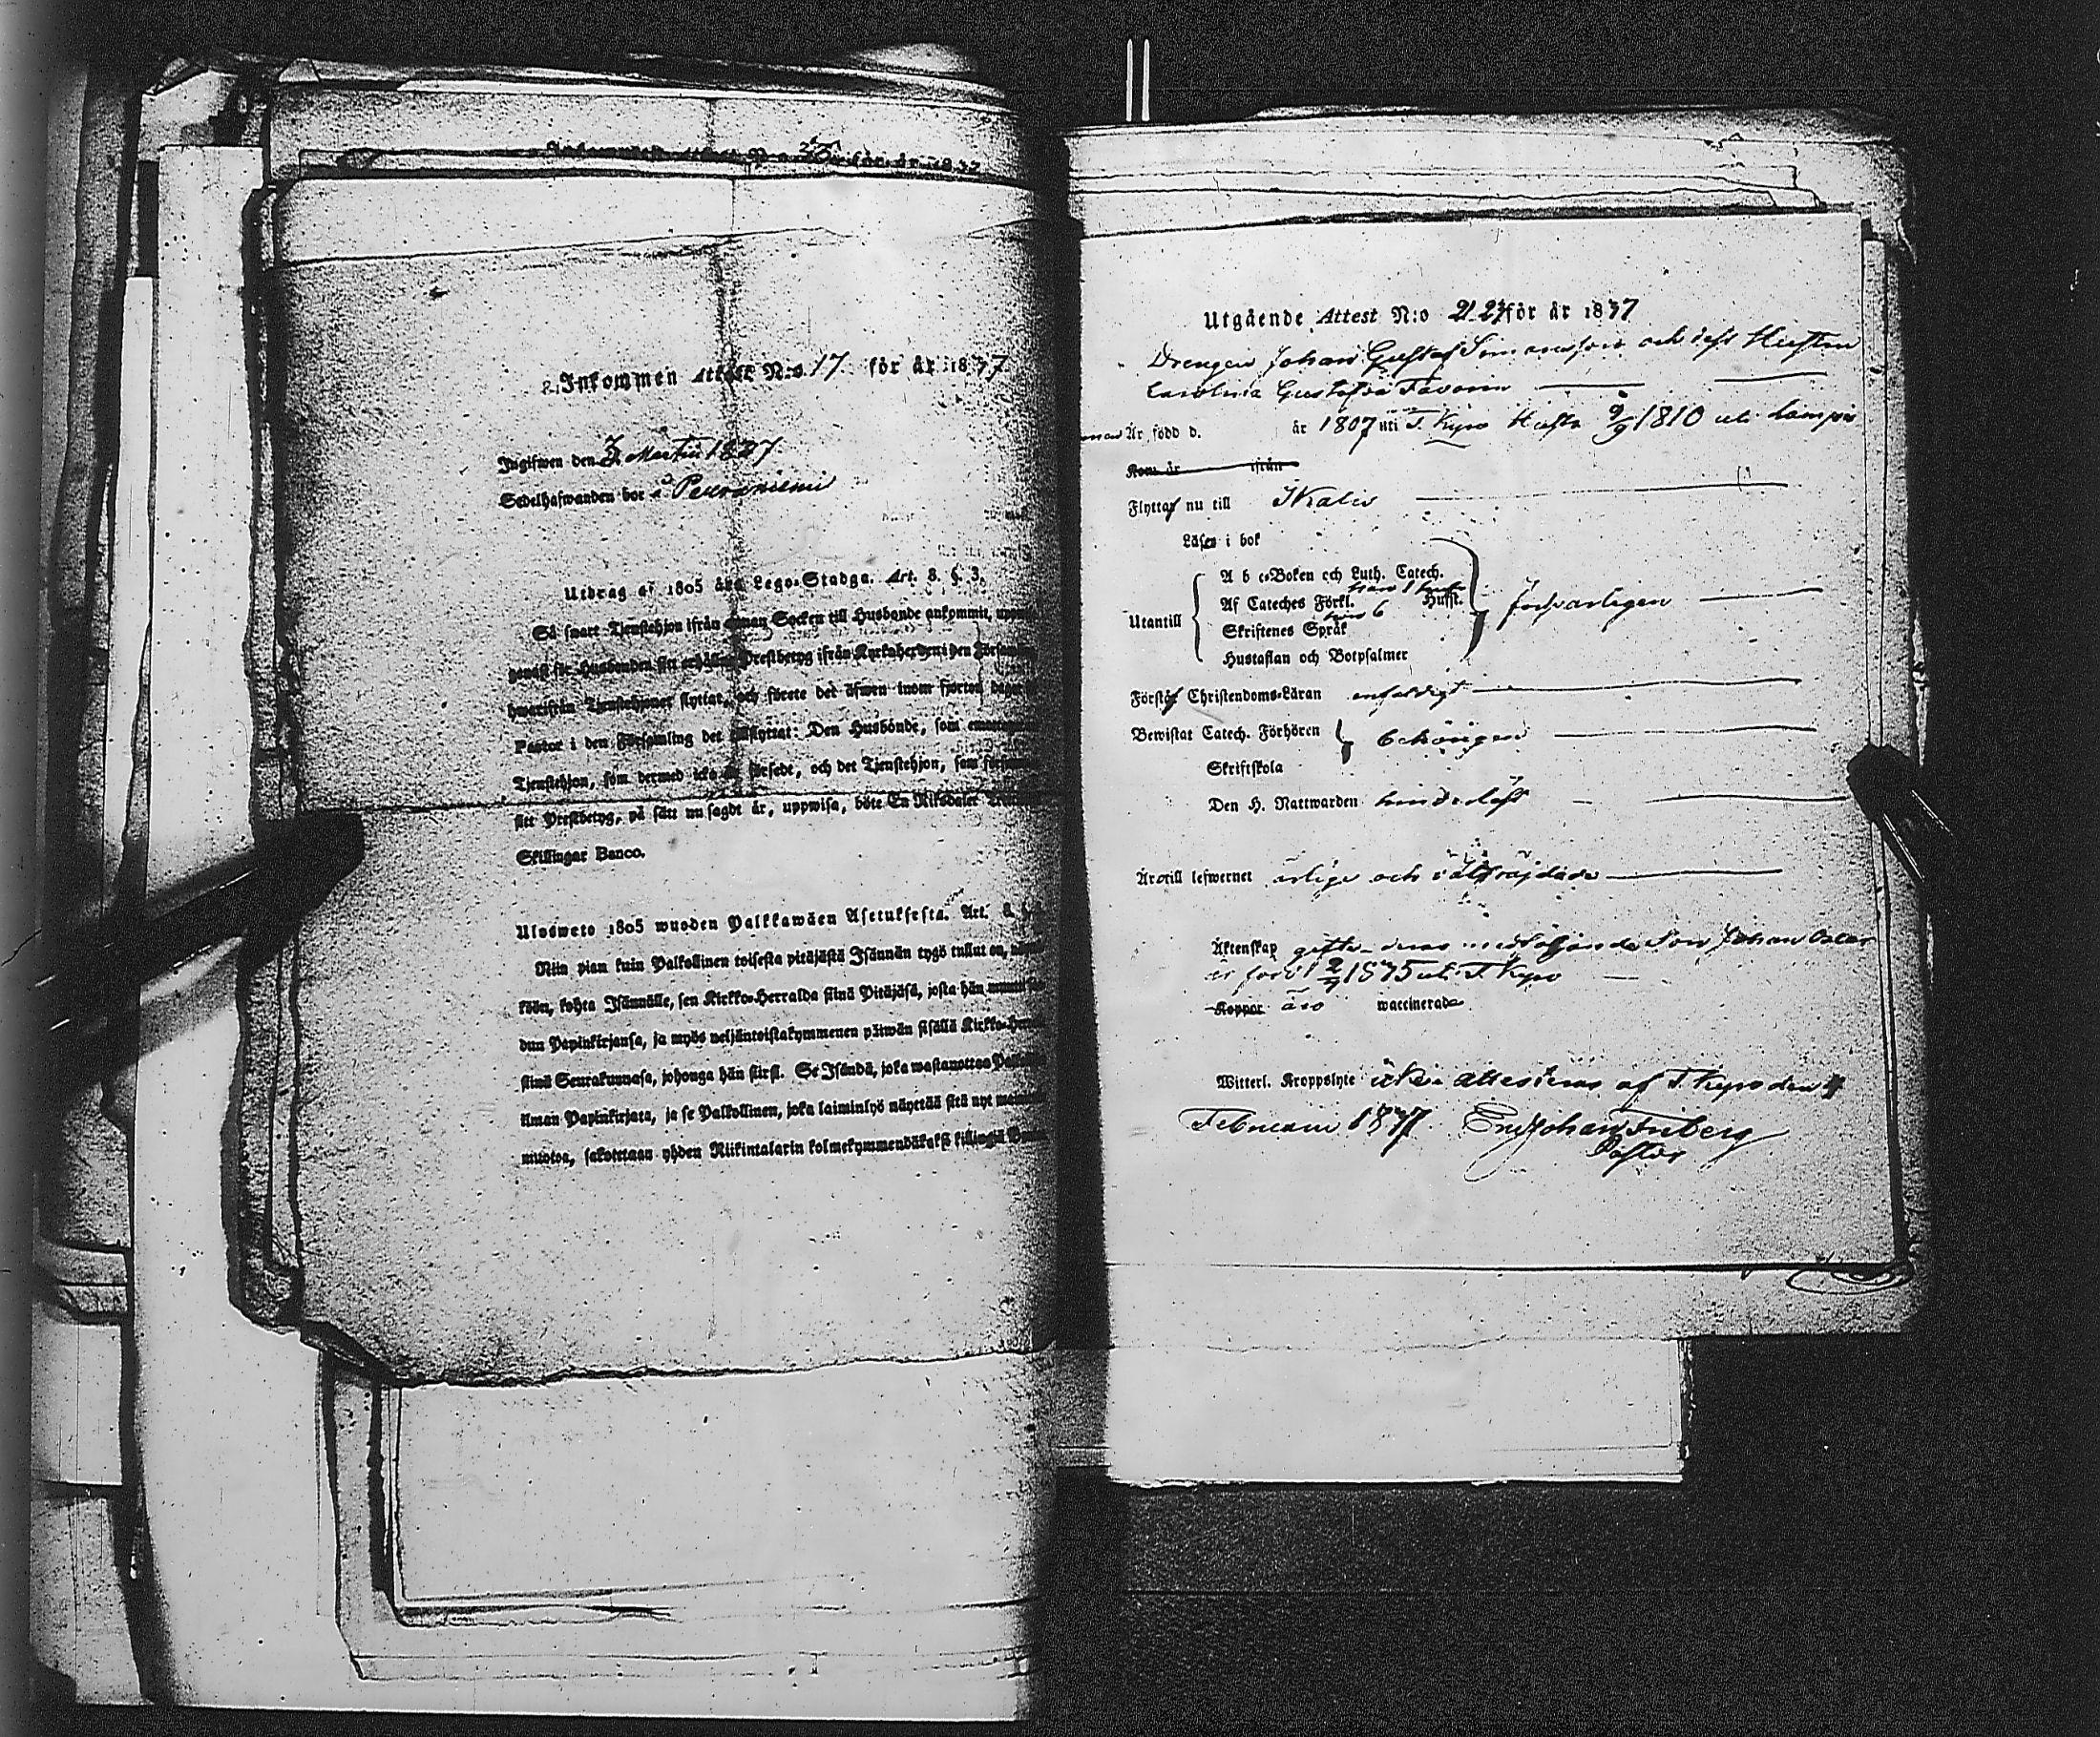 Inkommen Attest N:o 17. för år 1837
Ingifwen den 3 Martii 1837
Sedelhafwanden bor å
Utdrag af 1805 års Lego-Stadga. Art. 8. §. 3.
Så snart Tjenstehjon ifrån annan Socken till Husbonde ankommit,
genast för Husbonden sitt erhållna Prestbetyg ifrån Kyrkoherden i den
hwarifrån Tjenstehjonet flyttat, och förete det äfwen inom fjorton dagar
Pastor i den Församling det tillflyttat: Den Husbonde, som
Tjenstehjon, som dermed icke är försedt, och det Tjenstehjon, som
sitt Prestbetyg, på sätt nu sagdt är, uppwisa, böte En Riksdaler
Skillingar Banco.
Ulosweto 1805 wuoden Palkkawäen Asetuksesta. Art. 8.
Niin pian kuin Palkollinen toisesta pitäjästä Isännän tygö tullut on,
köön, kohta Isännälle, sen Kirkko-Herralda siinä Pitäjäsä, josta hän
dun Papinkirjansa, ja myös neljäntoistakymmenen päiwän sisällä
siinä Seurakunnasa, johonga hän siirsi. Se Isändä, joka wastanottaa
ilman Papinkirjata, ja se Palkollinen, joka laiminlyö näyttää sitä nyt
muotoa, sakotetaan yhden Riikintalarin kolmekymmendäkaksi killingiä
Utgående Attest N:o för år 1837
Drengen Johan Gustaf Simonsson och dess Hustru
Carolina Gustafva
Är född d. år 1807 uti T. Kyro Hustr 9/9 1810 uti
Kom år ifrån
Flyttaf nu till Ikalis
Läses i bok
A b c-Boken och Luth. Catech.
Af Cateches Förkl. Husst.
Utantill
Skriftenes Språk
Hustaflan och Botpsalmer
försvarligen
Förstår Christendoms-Läran enfaldigt
Bewistat Catech. Förhören behörigen
Skriftskola
Den H. Nattwarden
Äro till lefwernet ärlige och
Äktenskap gifte deras medföljande Son Johan Oscar
är född 1835 uti T. Kyro
Koppor äro waccinerade
Witterl. Kroppslyte icke attesteras af T. Kyro den 4
Februarii 1837. Johan Friberg
Pastor